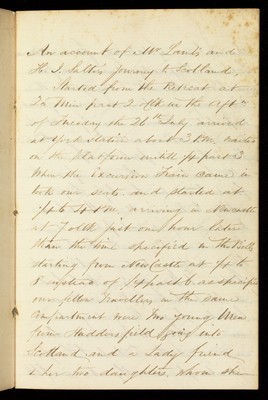 An account of Mr Lamb's and
H. J. Salter's Journey to Scotland,
Started from the Retreat at
20 Min past 2 oClk in the aft
of Tuesday the 26th July arrived
at York station about 3 P.M. waited
on the Platform untill 1/4 past 3
When the Excursion Train came in
took our seats and started at
1/4 to 4 P.M. arriving in Newcastle
at 7 oClk just one hour later
than the time specified in the Bills
starting from New Castle at 1/4 to
8 instead of 1/4 past 6 as specified
our fellow Travellers in the same
compartment were two young Men
from Huddersfield going into
Scotland and a Lady friend
& her two daughters whom she